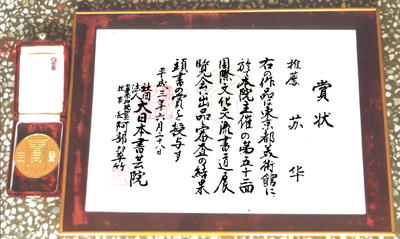 賞状
推薦 苏华
右の作品は東京都美術館に
於て本院主催の第五十二回
国際文化交流書道展
覧会に出品し審査の結果
頭書の賞を授与す
平成三年六月二十八日
社団法人 大日本書芸院
理事長 阿部翠竹
賞